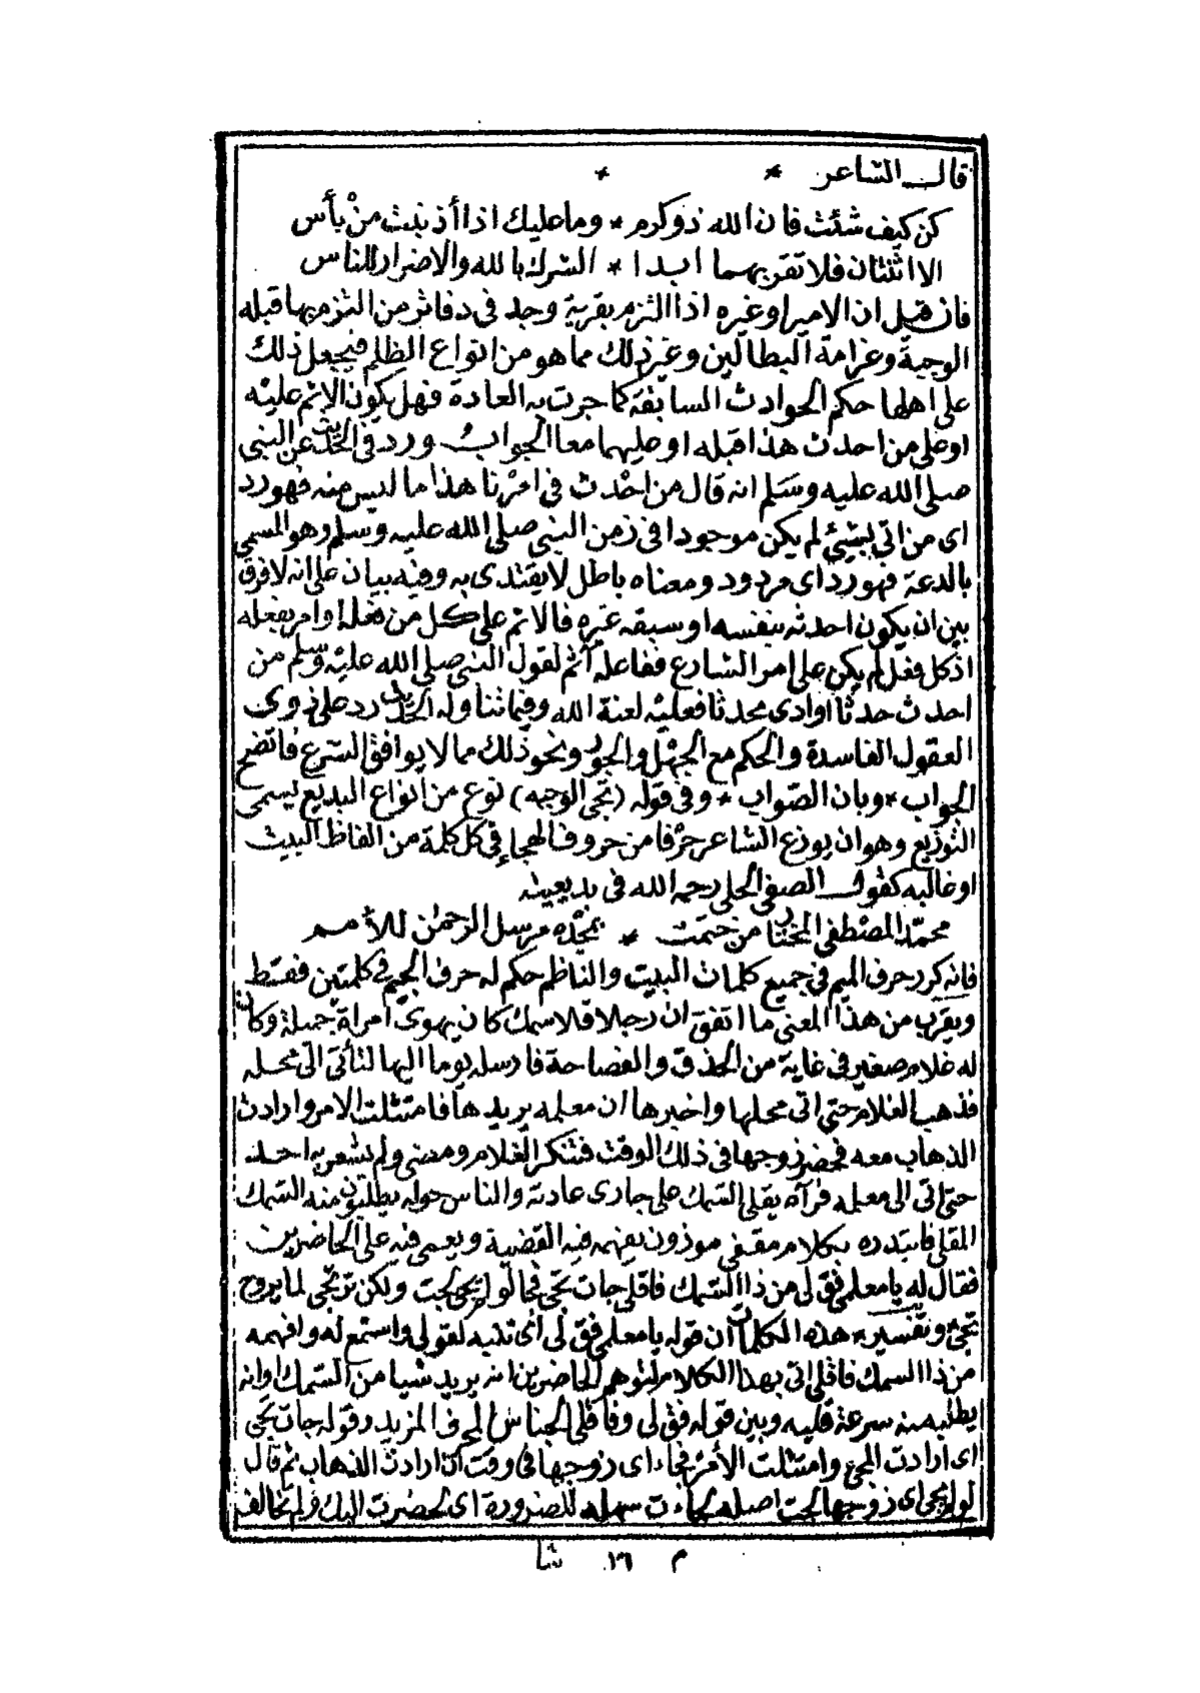 قال الشاعر * *
كن كيف شئت فان الله ذو كرم * وما عليك اذا أذنبت منْ بأس
الا اثنتان فلا تقربهما ابدا * الشرك بالله والاضرار للناس
فان قيل ان الامير او غيره اذا التزم بقرية وجد في دفاتر من التزم بها قبله
الوجبة وغرامة البطالين وغير ذلك مما هو من انواع الظلم فيجعل ذلك
على اهلها حكم الحوادث السابقة كما جرت به العادة فهل يكون الاثم عليه
او على من احدث هذا قبله او عليهما معا الجواب ورد في الحديث عن النبى
صلى الله عليه وسلم انه قال من احْدث في امرْنا هذا ما ليس منه فهو رد
اى من اتى بشيئ لم يكن موجودا فى زمن النبى صلى الله عليه وسلم وهو المسمى
بالدعة فهو رد اى مردود ومعناه باطل لا يقتدى به وفيه بيان على انه لا فرق
بين ان يكون احدثه بنفسه او سبقه غيره فالاثم على كل من فعله او امر بفعله
اذ كل فعل لم يكن على امر الشارع ففاعله آثم لقول النبى صلى الله عليه وسلم من
احدث حدثا او ادى محدثا فعليه لعنة الله وفيما تناوله الحديث رد على ذوى
العقول الفاسدة والحكم مع الجهل والجور ونحو ذلك مما لا يوافق الشرع فاتضح
الجواب * وبان الصّواب * وفى قوله (تجى الوجبه) نوع من انواع البديع يسمى
التوزيع وهو ان يوزع الشاعر حرْفا من حروف الهجاء في كل كلمة من الفاظ البيت
او غالبه كقول الصفى الحلى رحمه الله فى بديعيته
محمّد المصْطفى المختار من ختمت * بمجْده مرسل الرحمٰن للأمم
فانه كرر حرف الميم فى جميع كلمات البيت والناظم حكم له حرف الجيم فى كلمتين فقط
ويقرب من هذا المعنى ما اتفق ان رجلا قلا سمك كان يهوى امراة جميلة وكان
له غلام صغير فى غاية من الحذق والفصاحة فارسله يوما اليها لتأتى الى محله
فذهب الغلام حتى اتى محلها واخبرها ان معلمه يريدها فامتثلت الامر وارادت
الذهاب معه فحضر زوجها فى ذلك الوقت فتنكر الغلام ومضى ولم يشعر به احد
حتى اتى الى معلمه فرآه يقلى السمك على جارى عادته والناس حوله يطلبون منه السمك
المقلى فابتدره بكلام مقفى موزون يفهمه فيه القضية ويعمى فيه على الحاضرين
فقال له يا معلمى فق لى من ذا السمك فاقلى جات تجى فجا لو لم يجى لجت ولكن ترتجى لما يروح
تجى * وتفسير * هذه الكلمات ان قوله يا معلمى فق لى اى تنبه لقولى واستمع له وافهمه
من ذا السمك فاقلى اتى بهذا الكلام ليوهم الحاضرين انه يريد شيا من السمك او انه
يطلبه منه سرعة قليه وبين قوله فق لى وفاقلى الجناس المحرف المزيد وقوله جات تجى
اى ارادت المجئ وامتثلت الأمر فجا اى زوجها فى وقت ان ارادت الذهاب ثم قال
لو لم يجى اى زوجها لجت اصله لجاءت سهله للضرورة اى لحضرت اليك ولم تخالف
م ١٦ شا